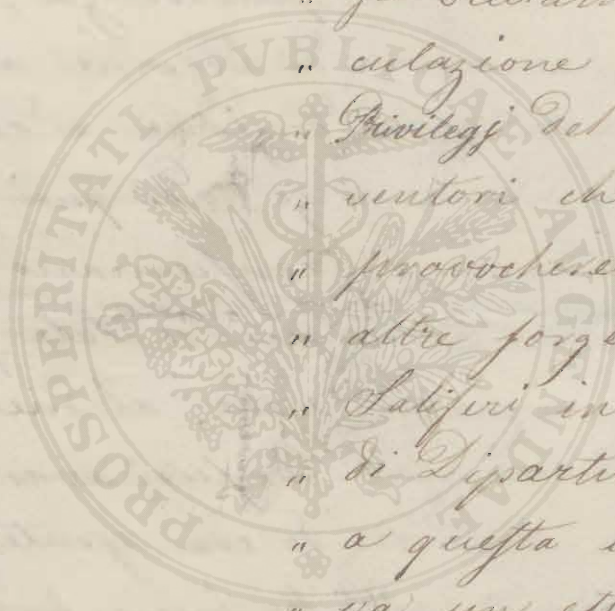 PROSPERITATI PVBLICAE AVGENDAE
„ culazione
„ Privilegj del
„ ventori ch
„ provochere
„ altre forge
„ Saliferi in
„ di Diparti
„ a questa